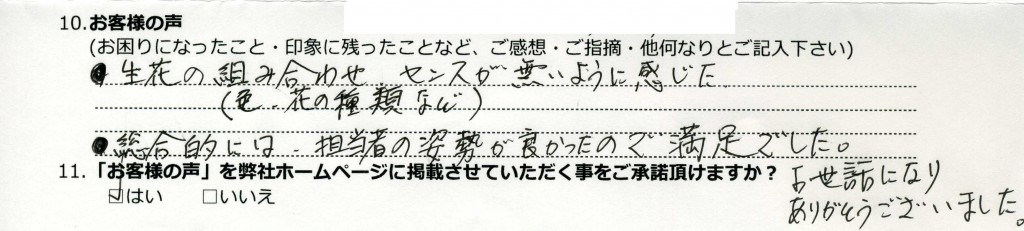 10.お客様の声
(お困りになったこと・印象に残ったことなど、ご感想・ご指摘・他何なりとご記入下さい)
● 生花の組み合わせ、センスが無いように感じた
(色、花の種類など)
● 総合的には、担当者の姿勢が良かったので満足でした。
11.「お客様の声」を弊社ホームページに掲載させていただく事をご承諾頂けますか?
☑はい □いいえ
お世話になり
ありがとうございました。